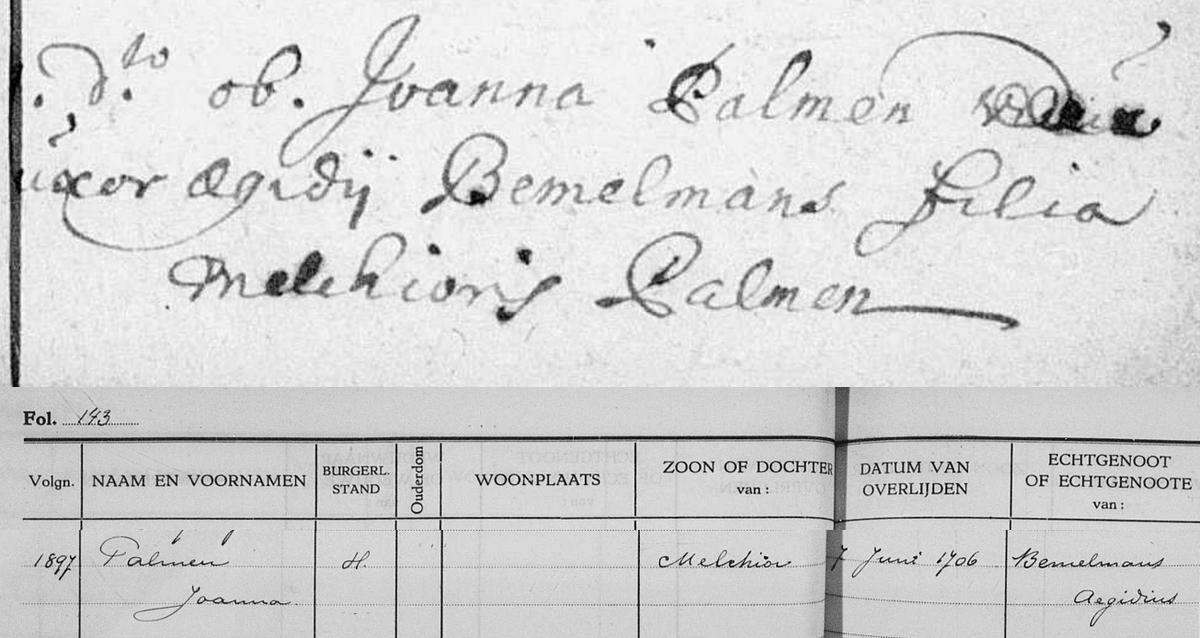 . d.to ob. Joanna Palmen
uxor Ægidij Bemelmans filia
Melchioris Palmen
Fol. 143
Volgn. NAAM EN VOORNAMEN BURGERL. STAND Ouderdom WOONPLAATS ZOON OF DOCHTER van: DATUM VAN OVERLIJDEN ECHTGENOOT OF ECHTGENOOTE van:
1897 Palmen H. Melchior 7 Juni 1706 Bemelmans
Joanna. Aegidius